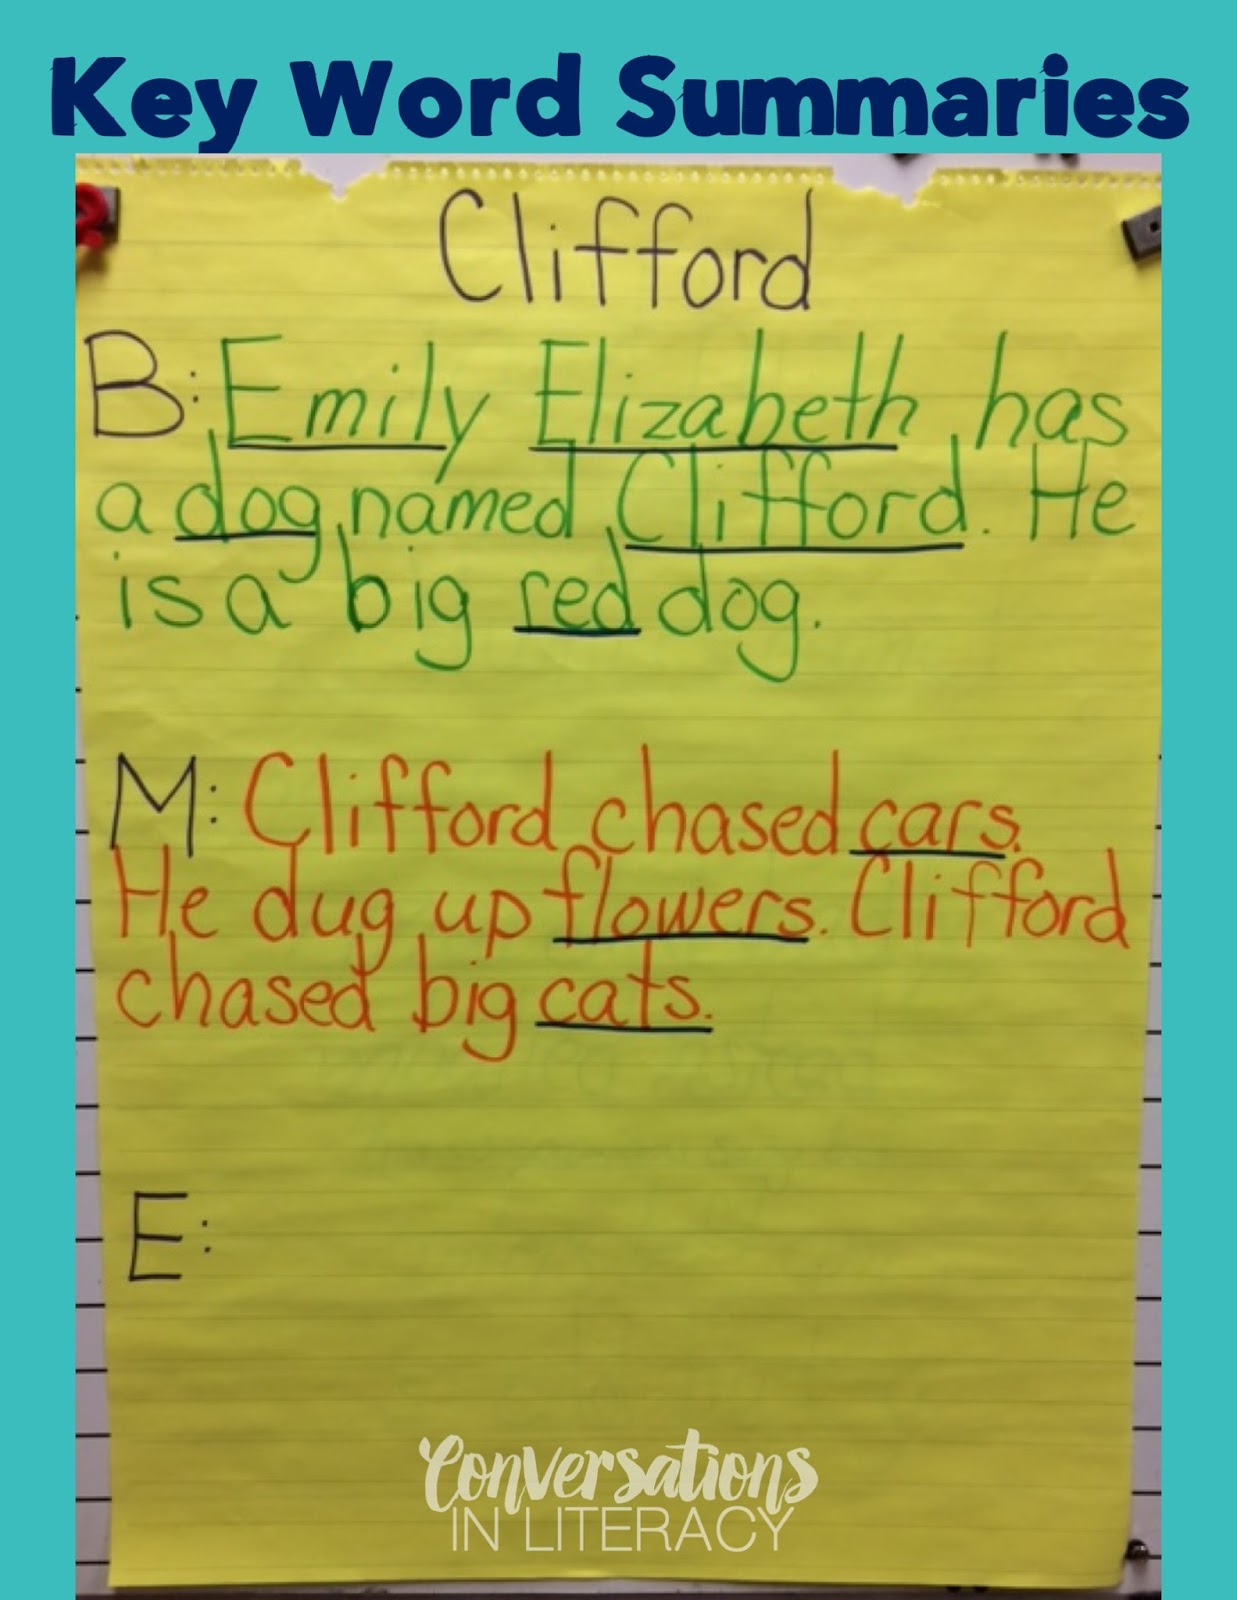 Key Word Summaries
Clifford
B: Emily Elizabeth has
a dog named Clifford. He
is a big red dog.
M: Clifford chased cars.
He dug up flowers. Clifford
chased big cats.
E:
Conversations
IN LITERACY